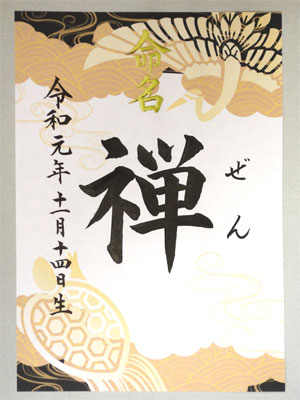 命名
ぜん
禅
令和元年十一月十四日生